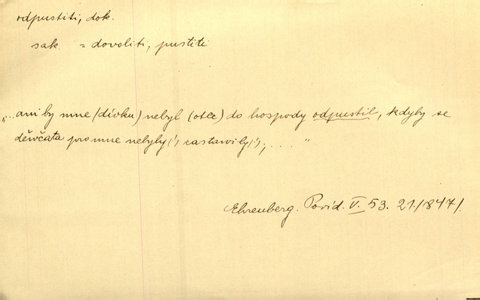 odpustiti, dok.
sak. = dovoliti, pustiti
„...ani by mne /dívku/ nebyl (otec) do hospody odpustil, kdyby se
děvčata pro mne nebyly(!) zastavily(!); . . . . “
Ehrenberg. Povíd. V. 53. 21/1847/.